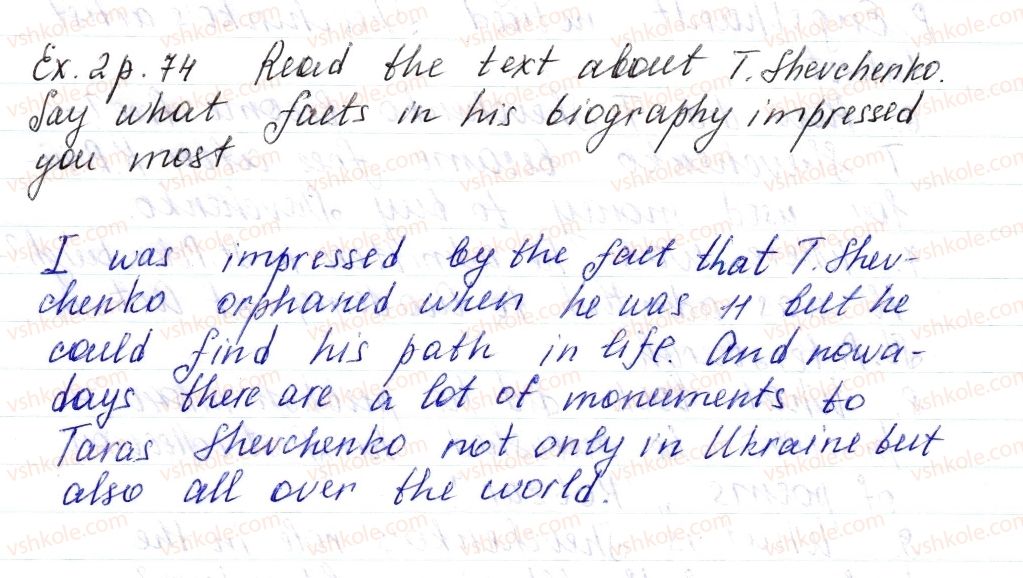 Ex. 2 p. 74 Read the text about T. Shevchenko.
Say what facts in his biography impressed
you most
I was impressed by the fact that T. Shev-
chenko orphaned when he was 11 but he
could find his path in life. And nowa-
days there are a lot of monuments to
Taras Shevchenko not only in Ukraine but
also all over the world.